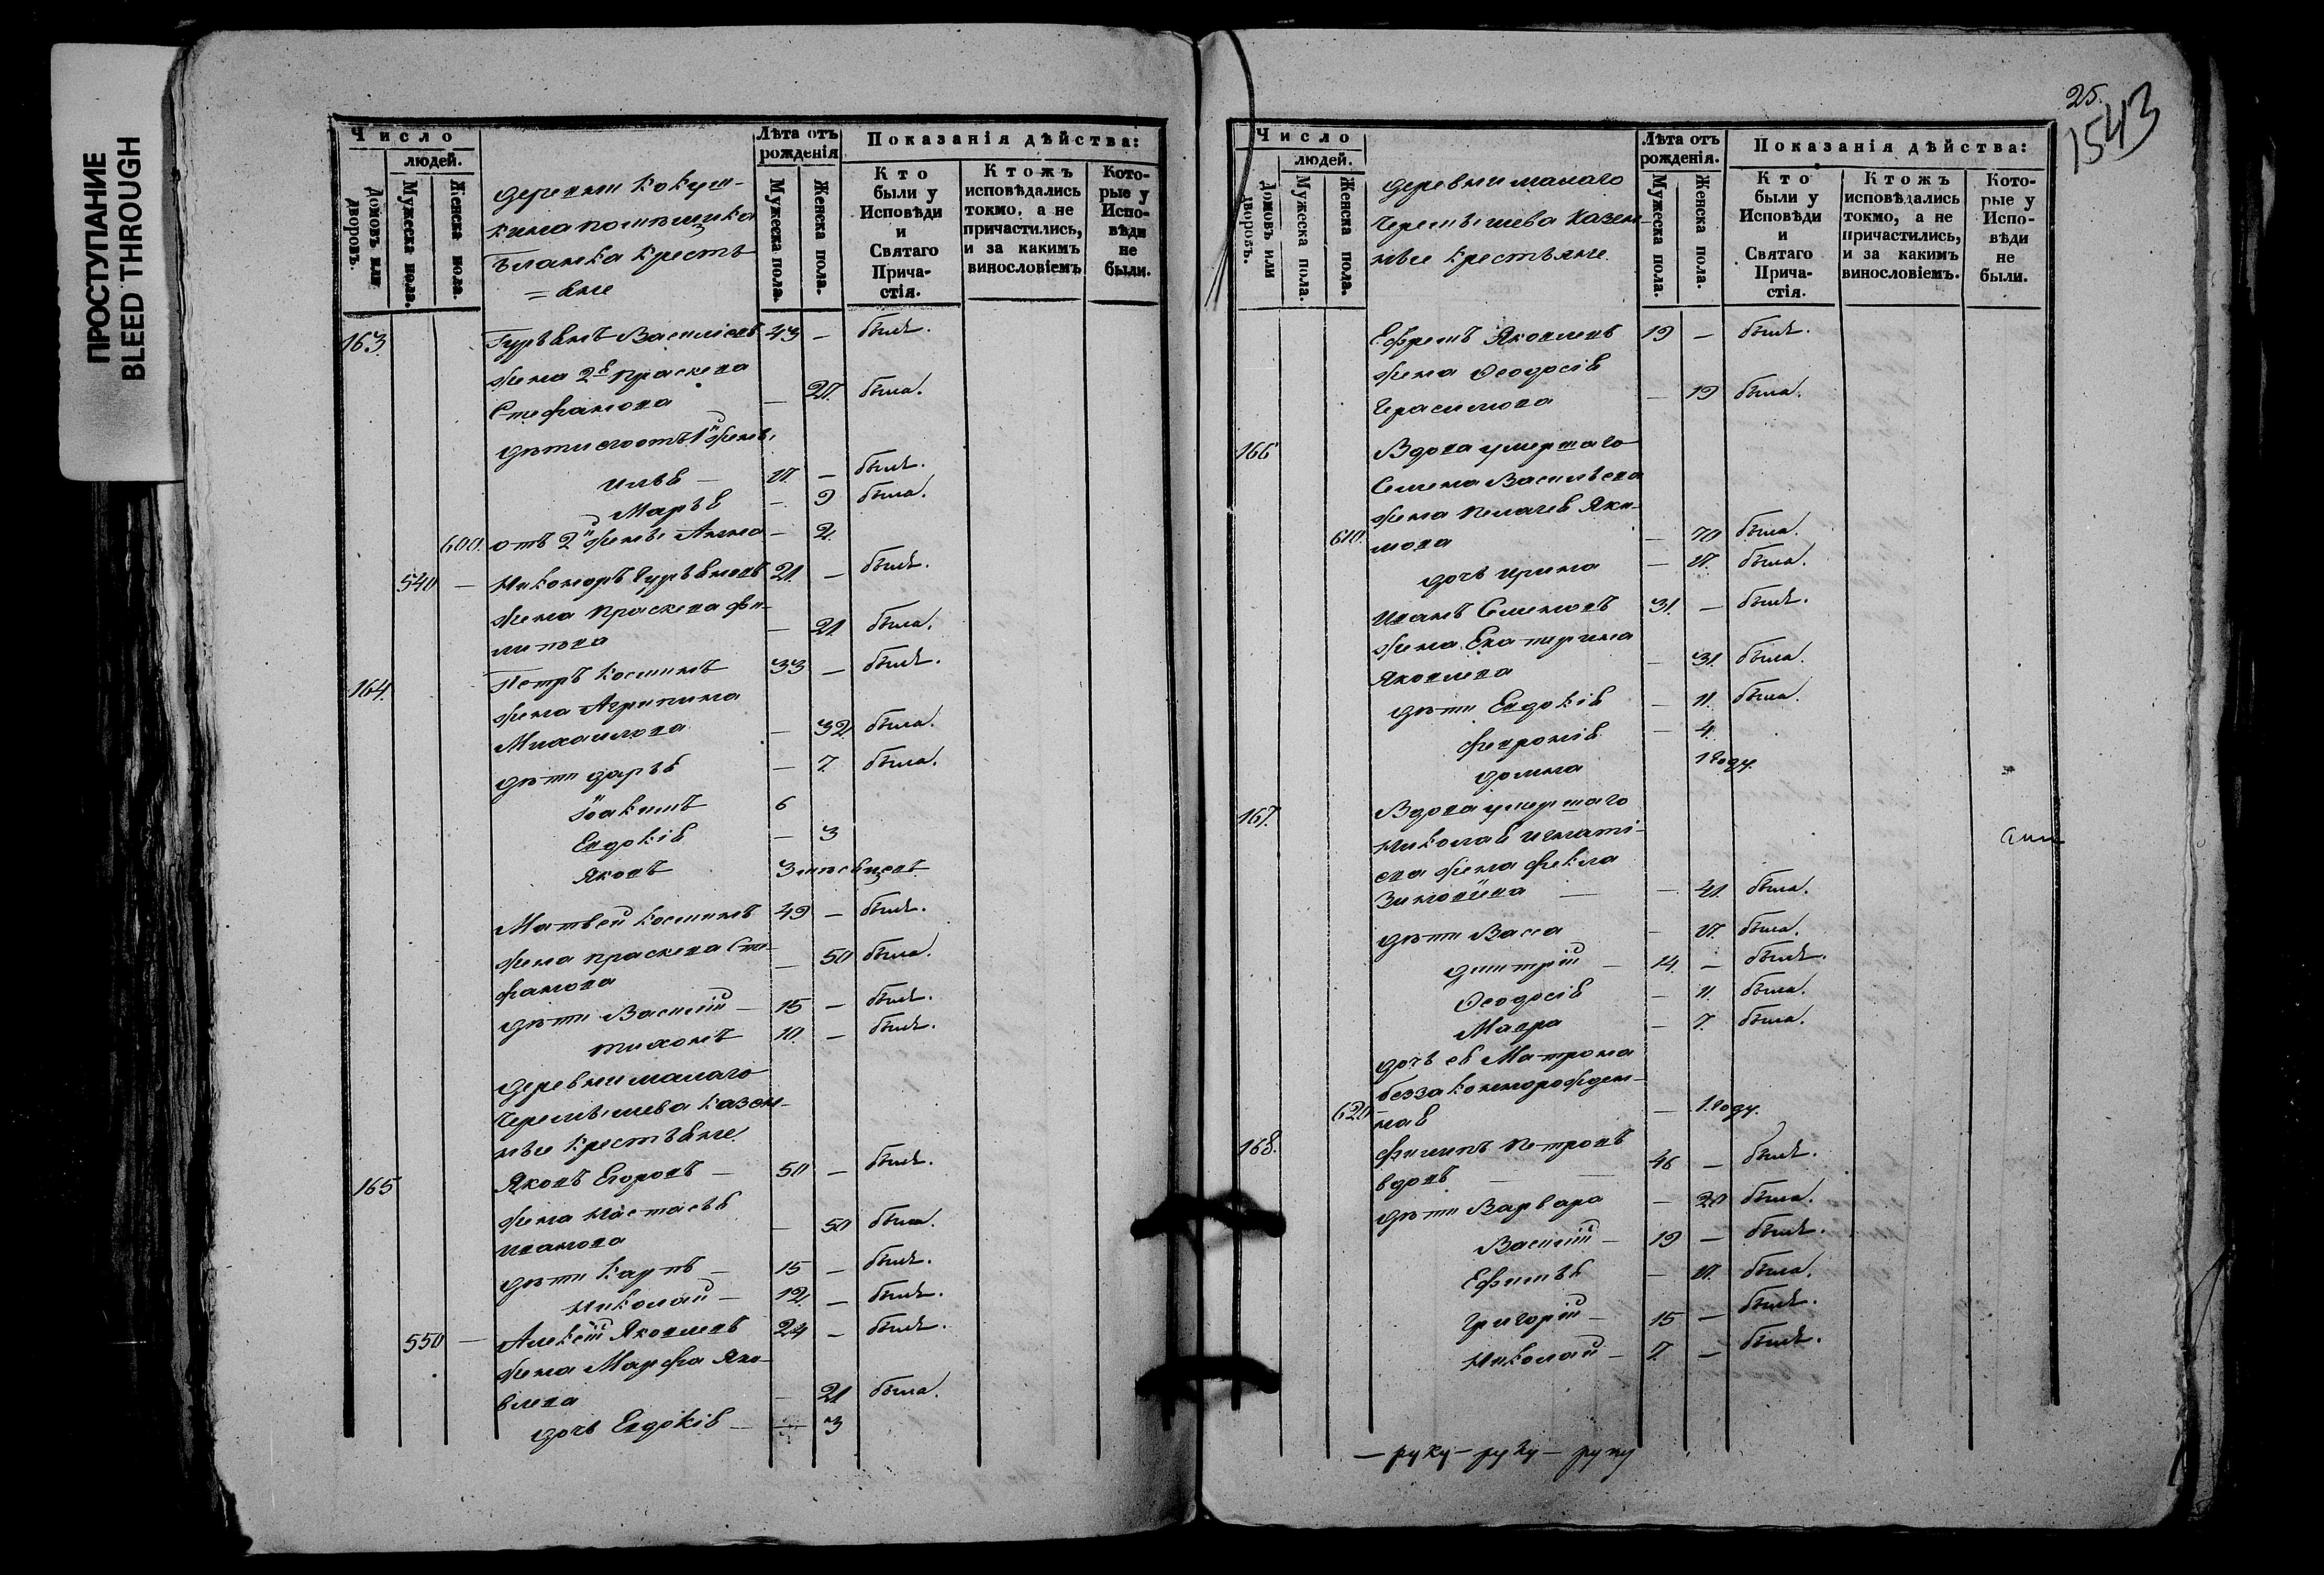 ПРОСТУПАНИЕ
BLEED THROUGH
Число
людей.
Домовъ или дворовъ.
Мужеска пола.
Женска пола.
Лѣта отъ рожденія
Мужеска пола.
Женска пола.
Показанія дѣйства:
Кто были у Исповѣди и Святаго Прича-стія.
Ктожъ исповѣдались токмо, а не причастились, и за какимъ винословіемъ
Кото-рые у Испо-вѣди не были.
деревни Кокуш-
кина помѣщика
Бланка кресть
=яне
163. Гурьянъ Василіевъ 43 — былъ.
жена 2я Праскева
Стефанова — 27. была.
дѣти его отъ 1й жены
Илья — 17. — былъ.
Марья — 9 была.
600. отъ 2й жены Анна — 2.
540 — Никоноръ Гурьяновъ 21. — былъ.
жена Праскева Фи-
липова — 21 была.
164. Петръ Косминъ 33 — былъ.
жена Агрипина
Михаилова — 32 была.
дѣти Дарья — 7. была.
Іоакимъ 6
Евдокія — 3
Яковъ 3 мѣсяцевъ
Матвей Косминъ 49 — былъ.
жена Праскева Сте-
фанова — 50 была.
дѣти Василій — 15 — былъ.
Тихонъ 10. — былъ.
деревни малаго
Черемышева казен-
ные крестьяне
165 Яковъ Егоровъ — 50 — былъ.
жена Настасья
Иванова — 50 была.
дѣти Карпъ — 15 — былъ.
Николай — 12. — былъ.
550 — Алексій Яковлевъ 24 — былъ.
жена Марфа Яко-
влева — 21 была.
дочь Евдокія — 3
25.
1543
Число
людей.
Домовъ или дворовъ.
Мужеска пола.
Женска пола.
Лѣта отъ рожденія.
Мужеска пола.
Женска пола.
Показанія дѣйства:
Кто были у Исповѣди и Святаго Прича-стія.
Ктожъ исповѣдались токмо, а не причастились, и за какимъ винословіемъ.
Кото-рые у Испо-вѣди не были.
деревни малаго
Черемышева казен
ные крестьяне
Ефремъ Яковлевъ 19 — былъ.
жена Ѳеодосія
Герасимова — 19 была.
166 Вдова умершаго
Семена Васильева
жена Пелагея Яки-
610. мова — 70 была.
дочь Ирина — 17. была.
Иванъ Семеновъ 31. — былъ.
жена Екатерина
Яковлева — 31. была.
дѣти Евдокія — 11. была.
Февронія — 4.
Домна 1 году.
167. Вдова умершаго
Николая Игнаті-
ева жена Фекла
Зиновіева — 41. была.
дѣти Васса — 17. была.
Дмитрій — 14. — былъ.
Ѳеодосія — 11. была.
Мавра — 7. была.
дочь ея Матрона
беззаконнорожден-
620 — ная — 1 году.
168. Филипъ Петровъ
вдовъ — 46 — былъ.
дѣти Варвара — 20 была.
Василій — 19 — былъ.
Ефимья — 17. была.
Григорій — 15 — былъ.
Николай — 7. — былъ.
— руку — руку — руку